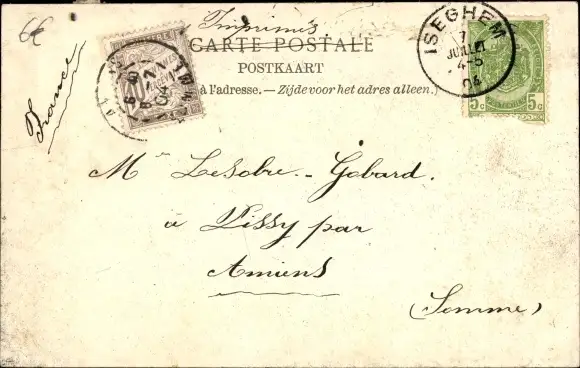 6€
Imprimés
CARTE POSTALE
POSTKAART
à l'adresse. — Zijde voor het adres alleen.)
France
ISEGHEM
7
JUILLET
4-5
04
5c 5c
Mr Lesobre - Gobard.
à Pissy par
Amiens
(Somme)